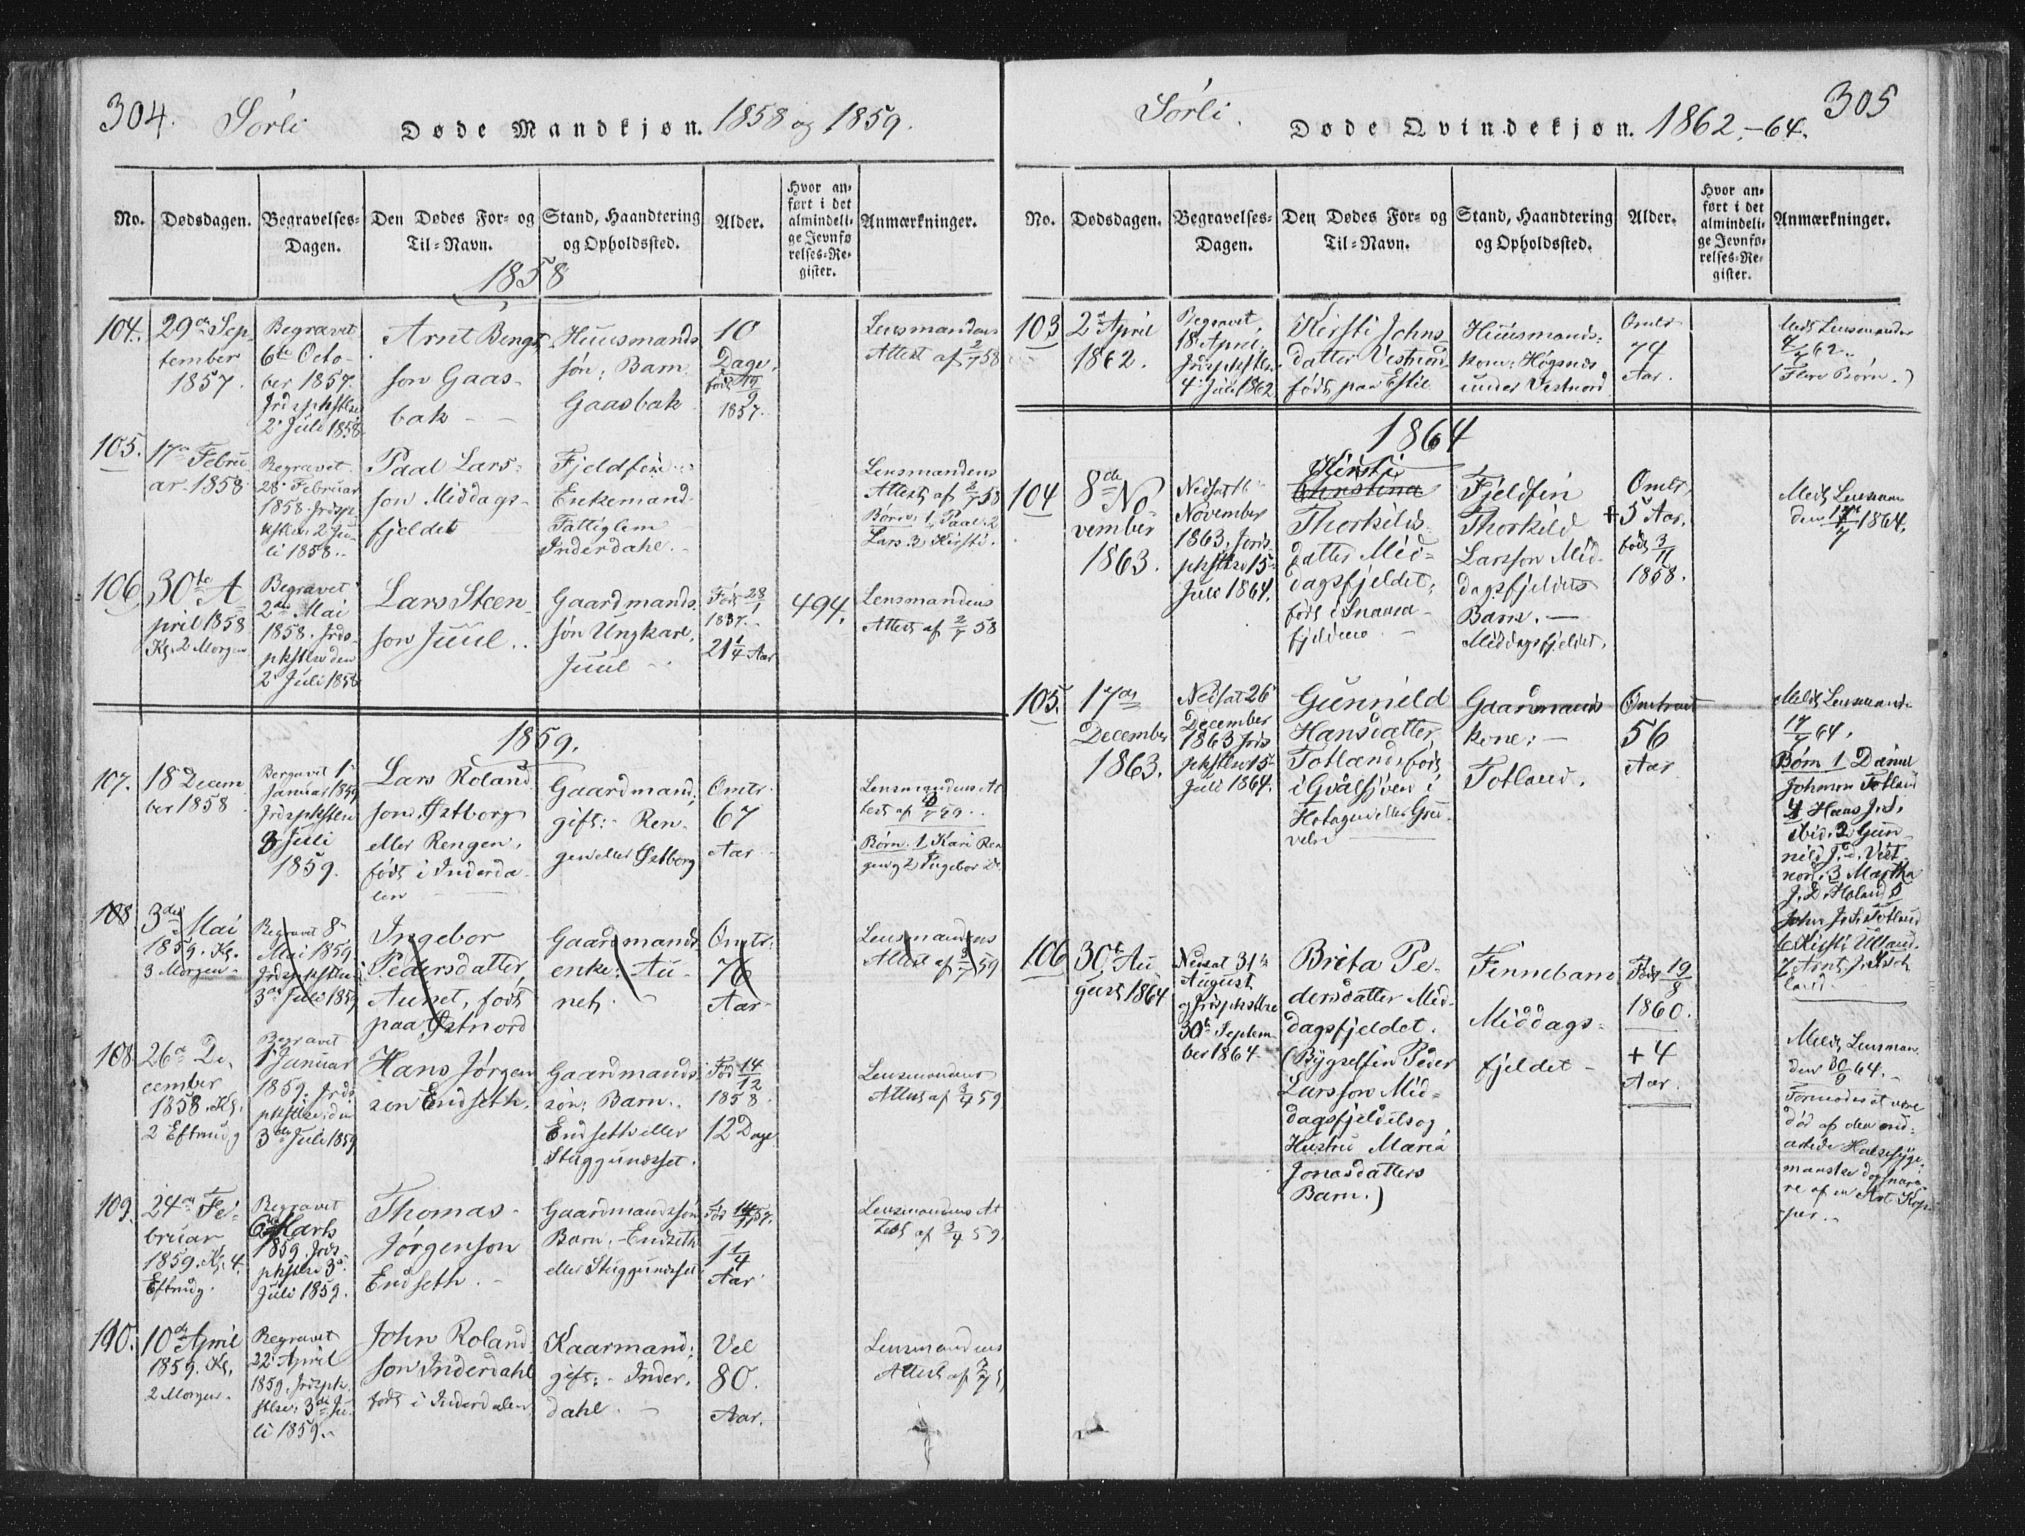 304. Sörli Døde Mandkjøn. 1858 og 1859.
No. Dødsdagen. Begravelses-Dagen. Den Dødes For- og Til-Navn. Stand, Haandtering og Opholdssted. Alder. Hvor anført i det almindelige Jevnførelses-Register. Anmærkninger.
1858
104. 29de Sep
tember
1857.
Begravet
6te Octo-
ber 1857.
Jrdspkstlse
2 Juli 1858
Arnt Bengt
son Gaas-
bak
Huusmands
søn: Barn
Gaasbak
10
Dage.
født 19/9
1857.
Lensmandens
Attest af 2/7 58
105. 17de Febru
ar 1858
Begravet
28 Februar
1858. Jrdsp
kstlse 2 Ju-
li 1858.
Paal Lars-
son Middags-
fjeldet
Fjeldfin
Enkemand
Fattiglem
Inderdahl.
Lensmandens
Attest af 2/7 58
Børn: 1 Paal. 2
Lars 3 Kirsti.
106. 30te A
pril 1858
Kl. 2 Morgen
Begravet
2den Mai
1858. Jrds-
pkstlse den
2 Juli 1858
Lars Steen-
son Juul
Gaardmands
søn Ungkarl
Juul
Født 28/1
1837.
21 1/4 Aar
494.
Lensmandens
Attest af 2/7 58
1859.
107. 18 Decem
ber 1858
Begravet 1
Januar 1859
Jrdspkstlse
3 Juli
1859.
Lars Roland
son Østborg
eller Rengen,
født i Inderda-
len
Gaardmand,
gift: Ren-
gen eller Østborg
Omtr.
67
Aar
Lensmandens At
test af
Børn. 1 Kari Ren
gen og 2 Ingebor
108. 3die Mai
1859. Kl.
3 Morgen
Begravet 8
Mai 1859
Jrdspkstlse
3 Juli 1859
Ingebor
Pedersdatter
Aunet, født
paa Østnord
Gaardmands
enke: Au-
net.
Omtr.
76
Aar
Lensmandens
Attest af 3/7 59
108. 26de De-
cember
1858. Kl.
2 Eftmdg
Begravet
1 Januar
1859. Jrds
pkstlse den
3die Juli 1859
Hans Jørgen
sen Endseth.
Gaardmands
søn: Barn.
Endseth eller
Stuggundset.
Fød 14/12
1858.
12 Dage
Lensmandens
Attest af 3/7 59
109. 24de Fe-
bruar
1859. Kl. 4
Eftmdg.
Begravet
6 Marts
1859. Jrds-
pkstlse 3
Juli 1859.
Thomas
Jørgenson
Endseth.
Gaardmandssøn
Barn. Endseth
eller Stuggundset
1 1/4
Aar
Lensmandens At
test af 3/7 59.
110. 10de April
1859. Kl.
2 Morgen.
Begravet
22 April
1859. Jrdspk-
stlse: 3die Ju-
li 1859.
John Roland
son Inderdahl
født i Inderdalen
Kaarmand;
gift: Inder-
dahl.
Vel
80.
Aar.
Lensmandens
Attest af
Sörli. Døde Qvindekjøn. 1862,-64. 305
No. Dødsdagen. Begravelses-Dagen. Den Dødes For- og Til-Navn. Stand, Haandtering og Opholdssted. Alder. Hvor anført i det almindelige Jevnførelses-Register. Anmærkninger.
103 2 April
1862.
Begravet
18 April.
Jrdspkstlse
4 Juli 1862
Kirsti Johns
datter Vestnord
født paa Estil
Huusmands-
kone: Högsnes
under Vestnord
Omtr
74
Aar.
Meldt Lensmanden
4/7 62.
(Flere Børn.)
1864
104 8de No
vember
1863.
Nedsat 16
November
1863. Jords-
pkstlse 15
Juli 1864.
Kirsti
Christina
Thorkilds-
datter Mid-
dagsfjeldet,
født i Snaasa-
fjeldene
Fjeldfin
Thorkild
Larsson Mid-
dagsfjeldets
Barn.
Middagsfjeldet.
Omtr.
+5 Aar.
født 3/11
1858.
Meldt Lensman
den 1864.
105. 17de
December
1863.
Nedsat 26
December
1863 Jrds
pkstlse 15
Juli 1864.
Gunnild
Hansdatter
Totland, født
i Gvalsjøen i
Hotagen eller
Gaardmands
kone:
Totland.
Omtrent
56
Aar
Meldt Lensmanden
64.
Børn 1 Daniel
Johnson Totland
4 Hans J.s.
ibid. 2 Gun-
nild J.d. Vest
nord. 3 Martha
J.d. Holand 5
John J.s. Totland
6 Kirsti Ulland.
7 Arnt J.s.
106 30te Au-
gust 1864
Nedsat 31te
August
og Jrdspkstlse
30te Septem
ber 1864
Brita Pe-
dersdatter Mid-
dagsfjeldet.
(Bygselfin Peder
Larsson Mid-
dagsfjeldet og
Hustru Maria
Jonasdatters
Barn.)
Finnebarn
Middags-
fjeldet
Født 19/8
1860.
+4
Aar.
Meldt Lensman
den 30/9 64.
Formodes at være
død af den ond-
artede Halssyge,
manske dog snara
re af en Art Kop-
per.